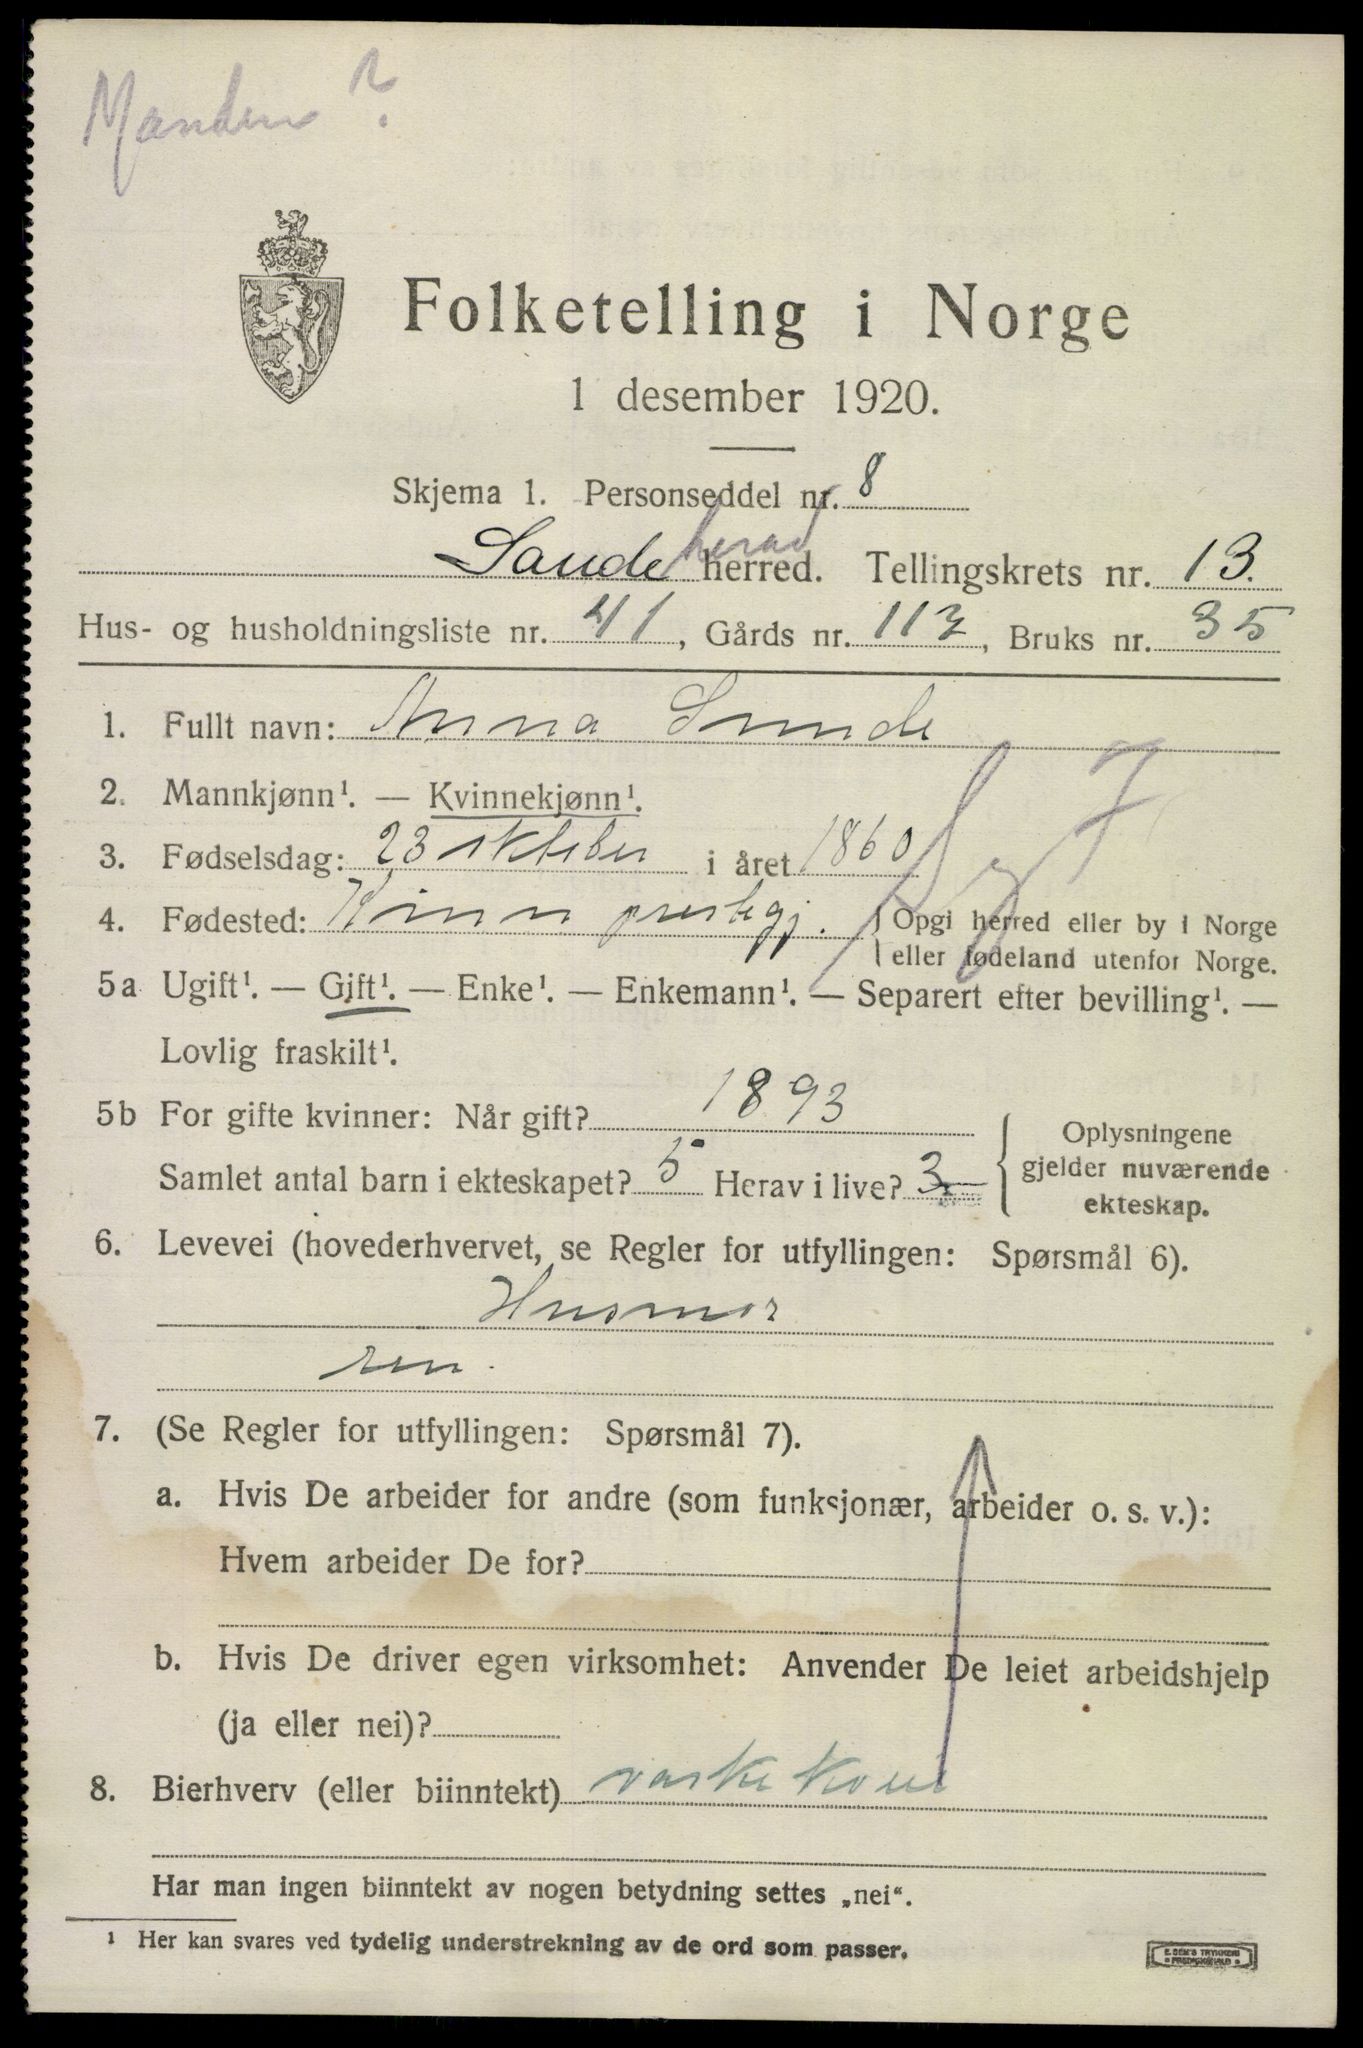 Manden?
Folketelling i Norge
1 desember 1920.
Skjema 1. Personseddel nr. 8
herad
Saude herred. Tellingskrets nr. 13.
Hus- og husholdningsliste nr. 41, Gårds nr. 113, Bruks nr. 35
1. Fullt navn: Anna Sunde
2. Mannkjønn¹. — Kvinnekjønn¹.
3. Fødselsdag: 23 oktober i året 1860
4. Fødested: Kinn prestegj. Opgi herred eller by i Norge
eller fødeland utenfor Norge.
5a Ugift¹. — Gift¹. — Enke¹. — Enkemann¹. — Separert efter bevilling¹. —
Lovlig fraskilt¹.
5b For gifte kvinner: Når gift? 1893
Samlet antal barn i ekteskapet? 5 Herav i live? 3
Oplysningene
gjelder nuværende
ekteskap.
6. Levevei (hovederhvervet, se Regler for utfyllingen: Spørsmål 6).
Husmor
7. (Se Regler for utfyllingen: Spørsmål 7).
a. Hvis De arbeider for andre (som funksjonær, arbeider o. s. v.):
Hvem arbeider De for?
b. Hvis De driver egen virksomhet: Anvender De leiet arbeidshjelp
(ja eller nei)?
8. Bierhverv (eller biinntekt) vaskekone
Har man ingen biinntekt av nogen betydning settes „nei“.
¹ Her kan svares ved tydelig understrekning av de ord som passer.
E. SEM'S TRYKKERI
FREDRIKSHALD